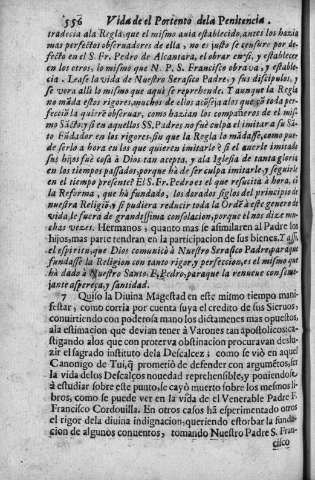 556 Vida de el Portento de la Penitencia.
tradecia ala Regla que el mismo auia establecido, antes los hazia
mas perfectos obseruadores de ella, no es justo se censure por de-
fecto en el S. Fr. Pedro de Alcantara, el obrar en si, y establecer
en los otros, lo mismo que N. P. S. Francisco obraua, y estable-
cia. Lease la vida de Nuestro Serafico Padre, y sus discipulos, y
se vera alli lo mismo que aqui se reprehende. Y aunque la Regla
no mãda estos rigores, muchos de ellos acõseja a los que cõ toda per-
fecciõ la quierē obseruar, como hazian los compañeros de el mis-
mo Sãcto; y si en aquellos SS. Padres no fuè culpa el imitar a su Sã-
to Fũdador en los rigores, siu que la Regla lo mãdasse, como pue-
de serlo a hora en los que quieren imitarle è si el auerle imitado
sus hijos fuè cosa à Dios tan acepta, y ala Iglesia de tanta gloria
en los tiempos passados, porque hà de ser culpa imitarle, y seguirle
en el tiempo presente? El S. Fr. Pedro es el que resucita à hora, cõ
la Reforma, que hà fundado, los dorados siglos del principio de
nuestra Religiõ, y si pudiera reducir toda la Ordē à este genero de
vida, le fuera de grandissima consolacion, porque el nos dize mu-
chas vezes. Hermanos, quanto mas se asimilaren al Padre los
hijos, mas parte tendran en la participacion de sus bienes. Y assi,
el espiritu, que Dios comunicò à Nuestro Serafico Padre, para que
fundasse la Religion con tanto rigor, y perfeccion, es el mismo que
hà dado à Nuestro Santo F. Pedro, para que la renueue con seme-
jante aspereça, y santidad.
7 Quiso la Diuina Magestad en este mismo tiempo mani-
festar, como corria por cuenta suya el credito de sus Sieruos,
conuirtiendo con poderosa mano los dictamenes mas opuestos,
ala estimacion que deuian tener à Varones tan apostolicos: ca-
stigando alos que con proterva obstinacion procuravan deslu-
zir el sagrado instituto dela Descalcez; como se viò en aquel
Canonigo de Tui, q̃ prometiò de defender con argumētos, ser
la vida delos Descalços nouedad reprehensible, y poniendose
à estudiar sobre este punto, se cayò muerto sobre los mesmos li-
bros, como se puede ver en la vida de el Venerable Padre F.
Francisco Cordouilla. En otros casos hã esperimentado otros
el rigor dela diuina indignacion, queriendo estorbar la funda-
cion de algunos conuentos, tomando Nuestro Padre S. Fran-
cisco